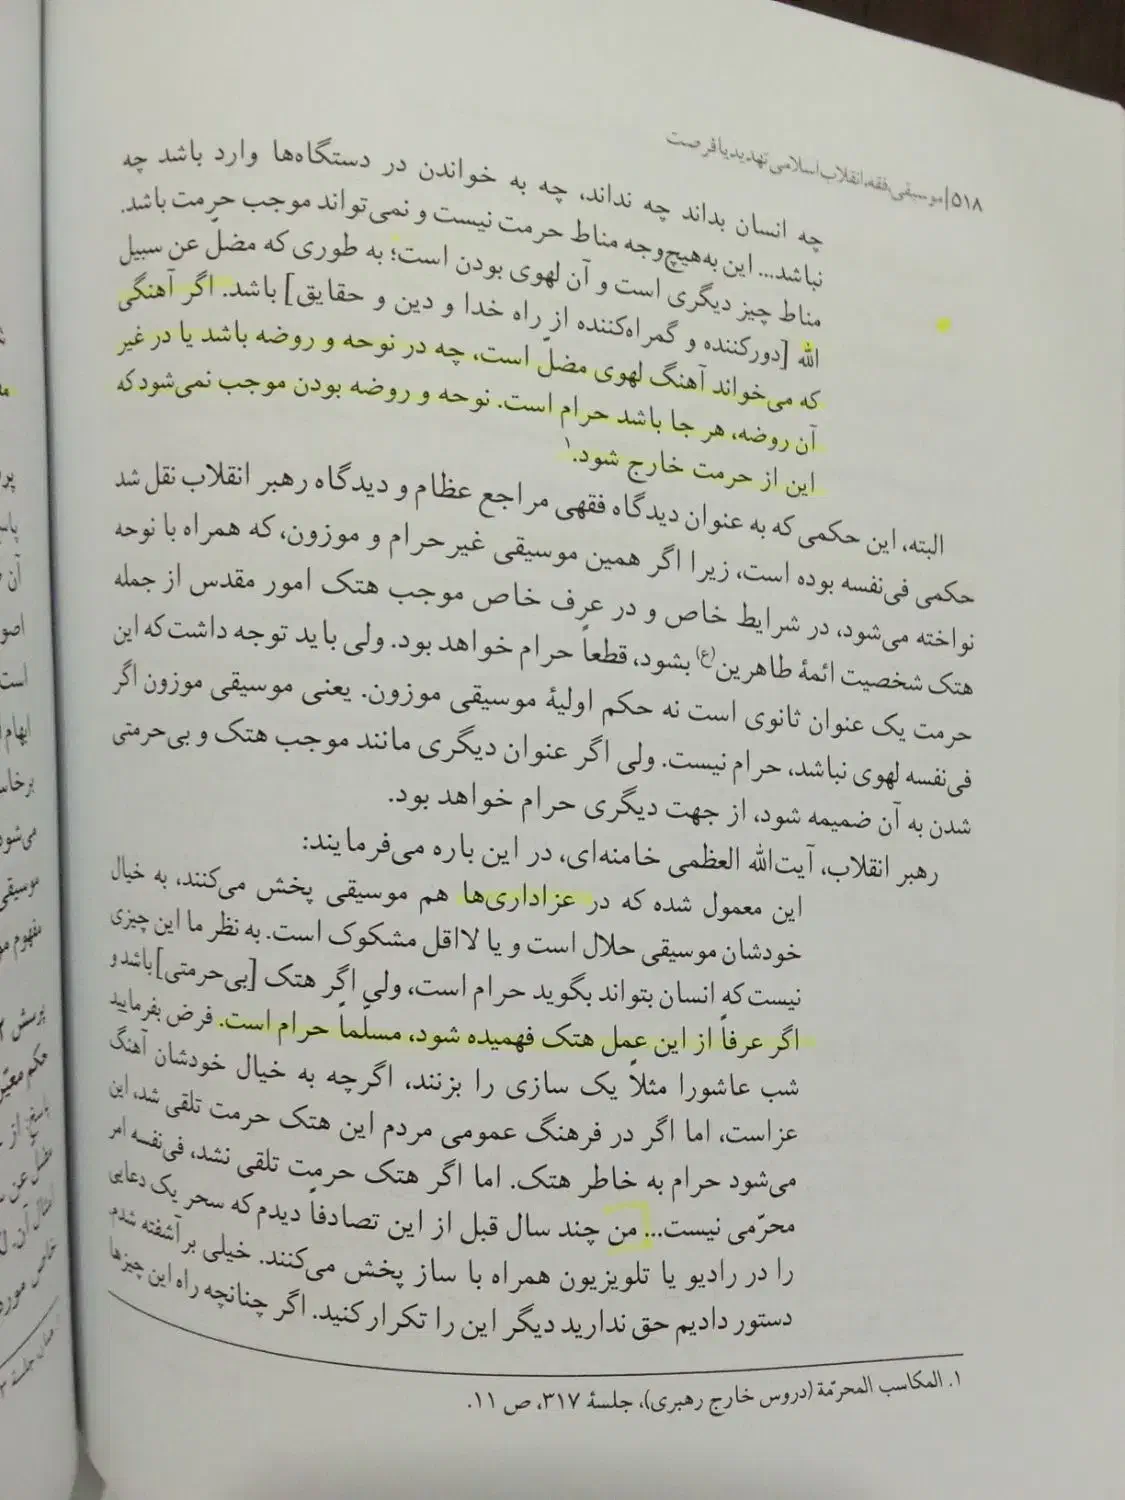 ۵۱۸|موسیقی، فقه، انقلاب اسلامی تهدید یا فرصت
چه انسان بداند چه نداند، چه به خواندن در دستگاه‌ها وارد باشد چه
نباشد... این به‌هیچ‌وجه مناط حرمت نیست و نمی‌تواند موجب حرمت باشد.
مناط چیز دیگری است و آن لهوی بودن است؛ به طوری که مضلّ عن سبیل
الله [دورکننده و گمراه‌کننده از راه خدا و دین و حقایق] باشد. اگر آهنگی
که می‌خواند آهنگ لهوی مضلّ است، چه در نوحه و روضه باشد یا در غیر
آن روضه، هر جا باشد حرام است. نوحه و روضه بودن موجب نمی‌شود که
این از حرمت خارج شود.۱
البته، این حکمی که به عنوان دیدگاه فقهی مراجع عظام و دیدگاه رهبر انقلاب نقل شد
حکمی فی‌نفسه بوده است، زیرا اگر همین موسیقی غیر حرام و موزون، که همراه با نوحه
نواخته می‌شود، در شرایط خاص و در عرف خاص موجب هتک امور مقدس از جمله
هتک شخصیت ائمهٔ طاهرین(ع) بشود، قطعاً حرام خواهد بود. ولی باید توجه داشت که این
حرمت یک عنوان ثانوی است نه حکم اولیهٔ موسیقی موزون. یعنی موسیقی موزون اگر
فی‌نفسه لهوی نباشد، حرام نیست. ولی اگر عنوان دیگری مانند موجب هتک و بی‌حرمتی
شدن به آن ضمیمه شود، از جهت دیگری حرام خواهد بود.
رهبر انقلاب، آیت‌الله العظمی خامنه‌ای، در این باره می‌فرمایند:
این معمول شده که در عزاداری‌ها هم موسیقی پخش می‌کنند، به خیال
خودشان موسیقی حلال است و یا لااقل مشکوک است. به نظر ما این چیزی
نیست که انسان بتواند بگوید حرام است، ولی اگر هتک [بی‌حرمتی] باشد و
اگر عرفاً از این عمل هتک فهمیده شود، مسلّماً حرام است. فرض بفرمایید
شب عاشورا مثلاً یک سازی را بزنند، اگرچه به خیال خودشان آهنگ
عزاست، اما اگر در فرهنگ عمومی مردم این هتک حرمت تلقی شد، این
می‌شود حرام به خاطر هتک. اما اگر هتک حرمت تلقی نشد، فی‌نفسه امر
محرّمی نیست... من چند سال قبل از این تصادفاً دیدم که سحر یک دعایی
را در رادیو یا تلویزیون همراه با ساز پخش می‌کنند. خیلی برآشفته شدم.
دستور دادیم حق ندارید دیگر این را تکرار کنید. اگر چنانچه راه این چیزها
۱. المکاسب المحرّمة (دروس خارج رهبری)، جلسهٔ ۳۱۷، ص ۱۱.